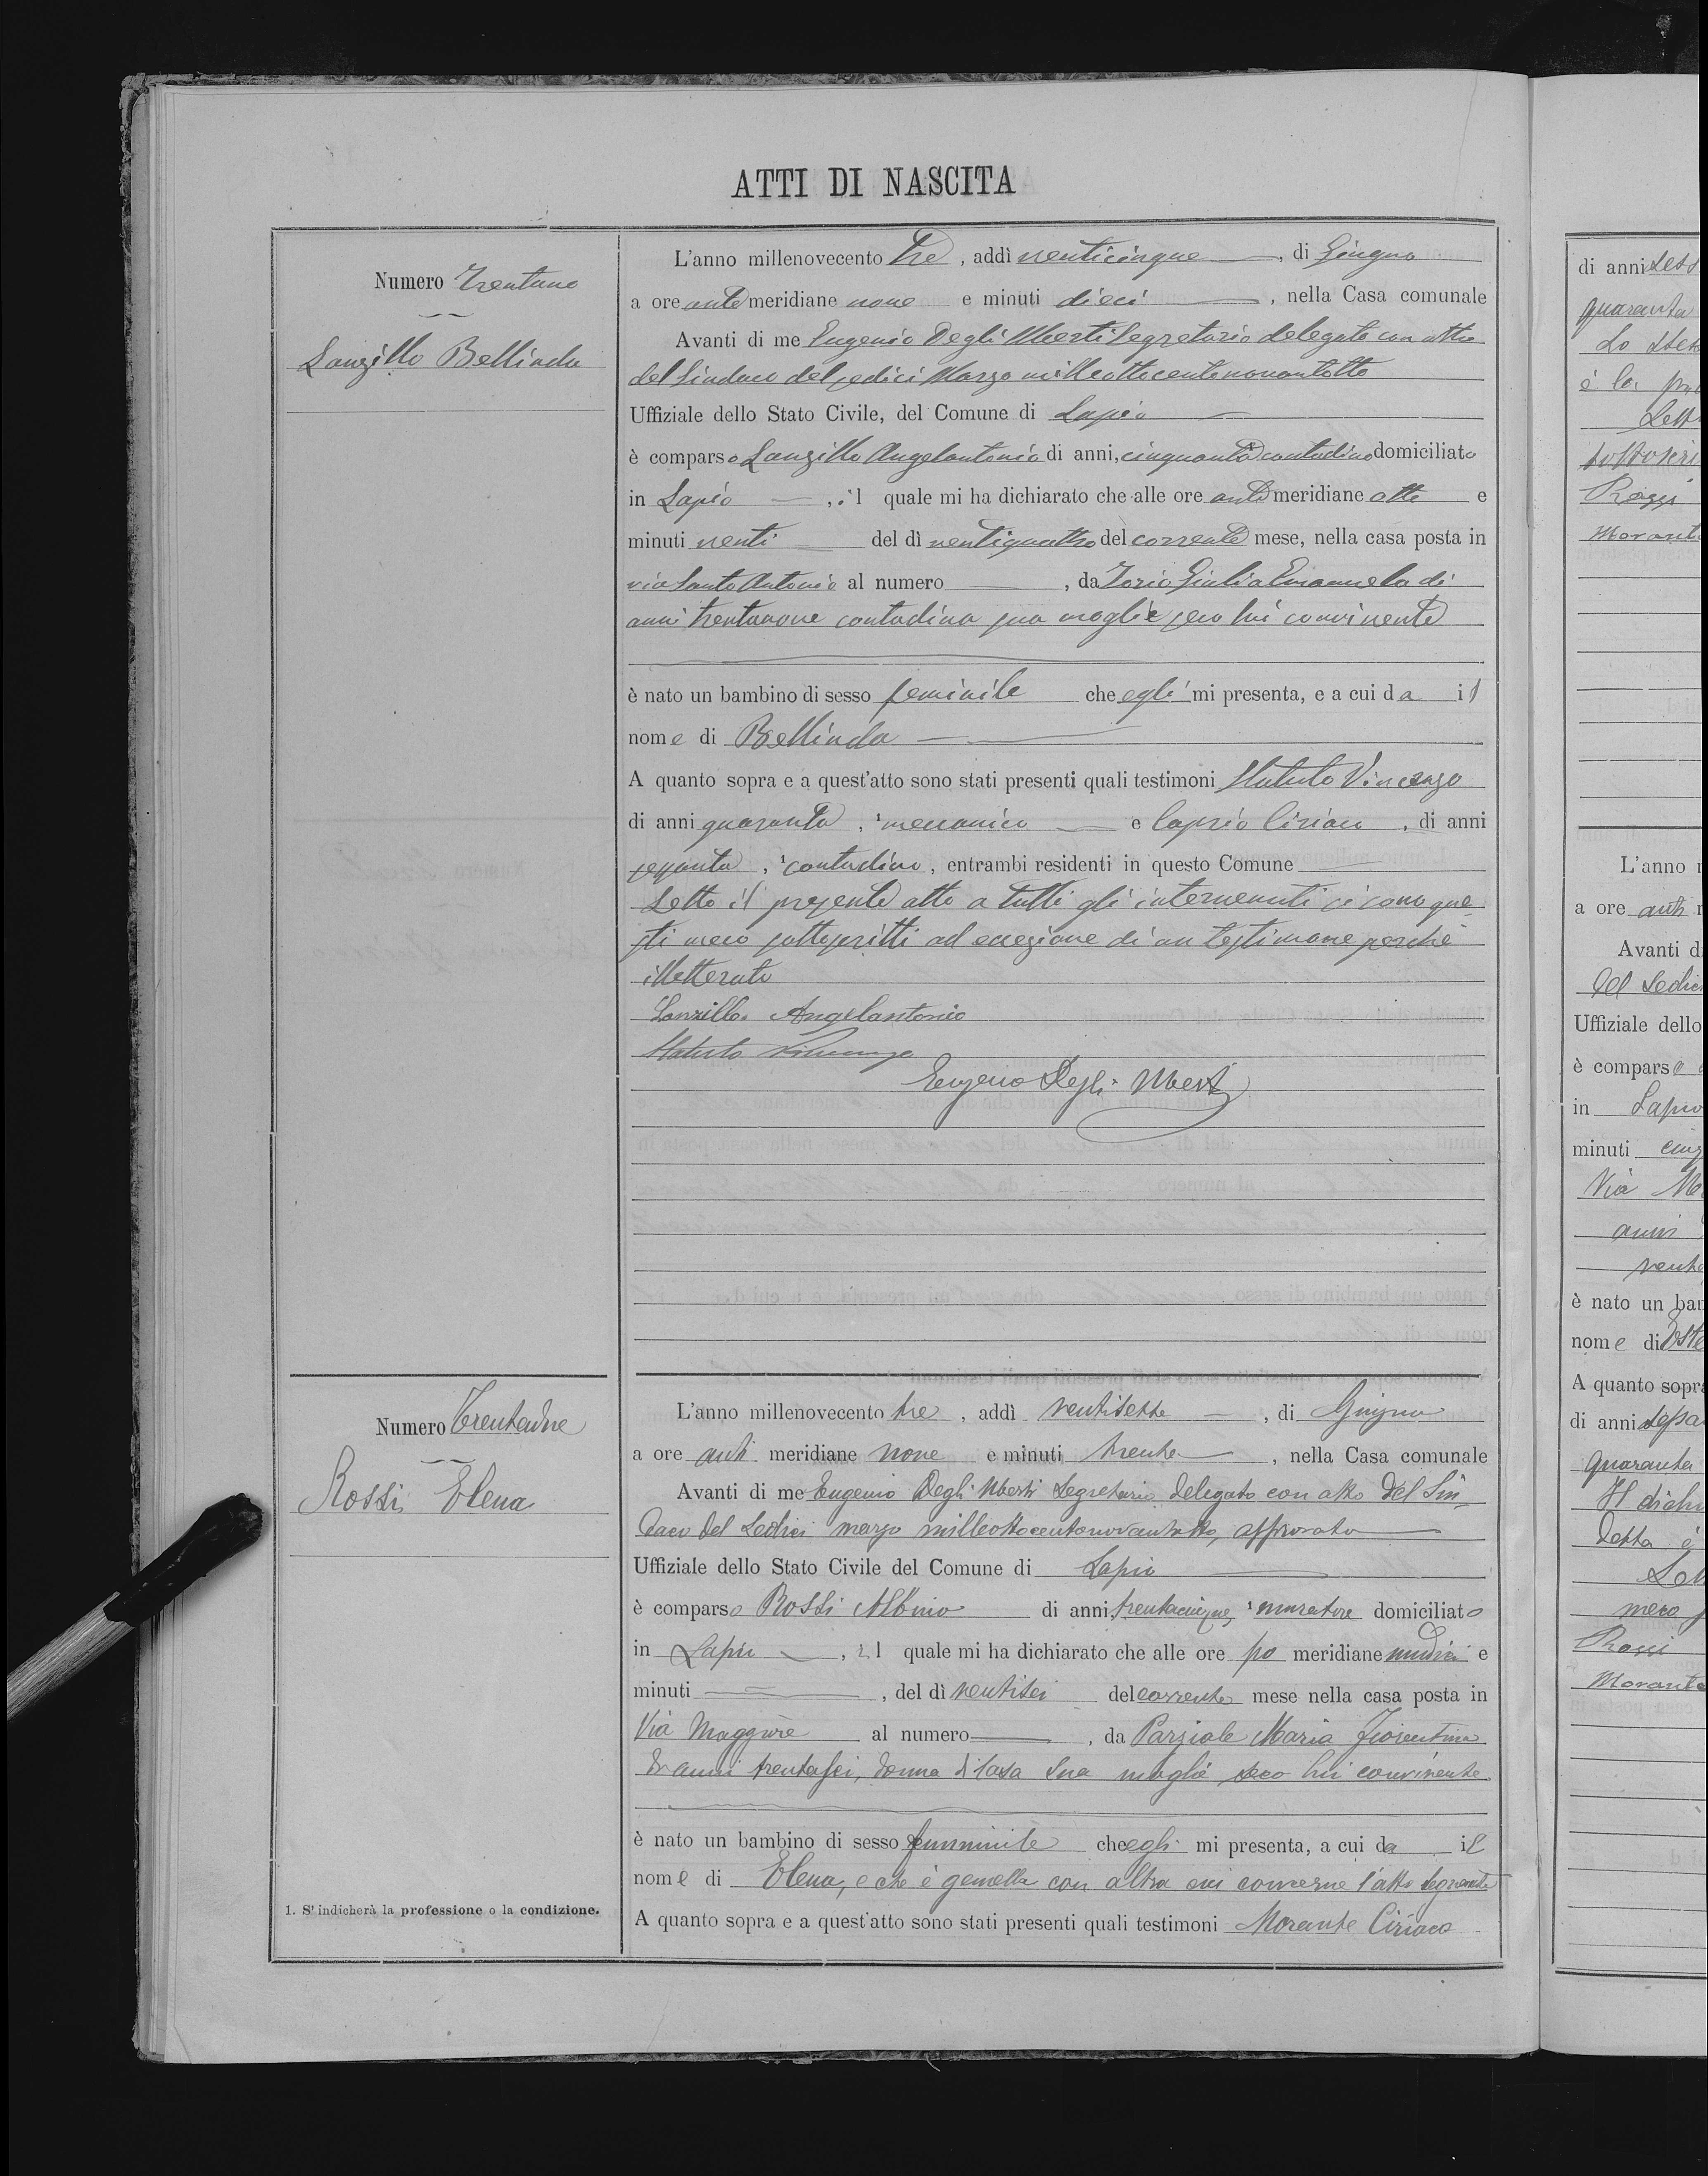 ATTI DI NASCITA
Numero Trentuno
Lanzillo Bellinda
L'anno millenovecento tre, addì venticinque, di Giugno
a ore antimeridiane nove e minuti dieci, nella Casa comunale
Avanti di me Eugenio Degli Uberti Segretario delegato con atto
del Sindaco del sedici Marzo milleottocentonovantotto
Uffiziale dello Stato Civile, del Comune di Lapio
è comparso Lanzillo Angelantonio di anni, cinquanta contadino domiciliato
in Lapio, il quale mi ha dichiarato che alle ore antimeridiane otto e
minuti venti del dì ventiquattro del corrente mese, nella casa posta in
via Santo Antonio al numero , da Iorio Giulia Emanuela di
anni trentanove contadina sua moglie seco lui convivente
è nato un bambino di sesso feminile che egli mi presenta, e a cui da il
nome di Bellinda
A quanto sopra e a quest'atto sono stati presenti quali testimoni Statuto Vincenzo
di anni quaranta, meccanico e Caprio Ciriaco, di anni
sessanta, contadino, entrambi residenti in questo Comune
Letto il presente atto a tutti gli intervenuti si sono que
sti meco sottoscritti ad eccezione di un testimone perchè
illetterato
Lanzillo Angelantonio
Statuto Vincenzo
Eugenio Degli Uberti
Numero Trentadue
Rossi Elena
L'anno millenovecento tre, addì ventisette, di Giugno
a ore anti meridiane nove e minuti trenta, nella Casa comunale
Avanti di me Eugenio Degli Uberti Segretario delegato con atto del Sin-
daco del Sedici marzo milleottocentonovantotto, approvato
Uffiziale dello Stato Civile del Comune di Lapio
è comparso Rossi Albino di anni, trentacinque, 1 muratore domiciliato
in Lapio, il quale mi ha dichiarato che alle ore po meridiane undici e
minuti , del dì ventisei del corrente mese nella casa posta in
Via Maggiore al numero , da Parziale Maria Fiorentina
di anni trentasei, donna di casa sua moglie seco lui convivente
è nato un bambino di sesso femminile che egli mi presenta, a cui da il
nome di Elena, e che è gemella con altra cui concerne l'atto seguente
A quanto sopra e a quest'atto sono stati presenti quali testimoni Morante Ciriaco
1. S'indicherà la professione o la condizione.
di anni
quaranta
Lo
è la
Rossi
L'anno
a ore anti
Avanti d
del Sedici
Uffiziale dello
è comparso
in Lapio
minuti
Via
anni
è nato un
nome di
A quanto sopra
di anni
quaranta
Il
detta è
meco
Rossi
Morante